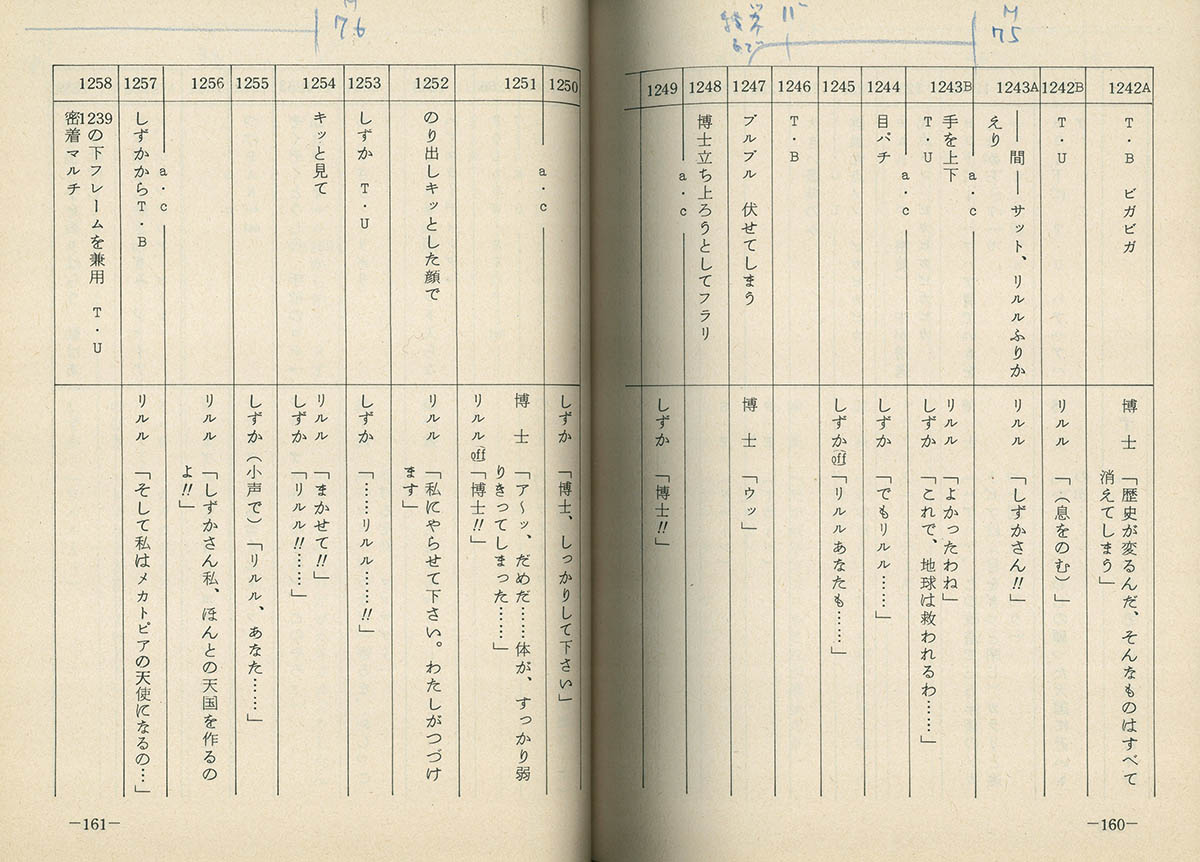 M
75
11"
M
76
1242A
T・B ビガビガ
博士「歴史が変るんだ、そんなものはすべて
消えてしまう」
1242B
T・U
リルル「(息をのむ)」
1243A
――間――サット、リルルふりか
えり
リルル「しずかさん!!」
―― a・c ――
1243B
手を上下
T・U
リルル「よかったわね」
しずか「これで、地球は救われるわ……」
―― a・c ――
1244
目パチ
しずか「でもリルル……」
1245
しずかoff「リルルあなたも……」
1246
T・B
1247
ブルブル 伏せてしまう
博士「ウッ」
1248
博士立ち上ろうとしてフラリ
―― a・c ――
1249
しずか「博士!!」
―160―
1250
しずか「博士、しっかりして下さい」
―― a・c ――
1251
博士「ア〜ッ、だめだ……体が、すっかり弱
りきってしまった……」
リルルoff「博士!!」
1252
のり出しキッとした顔で
リルル「私にやらせて下さい。わたしがつづけ
ます」
1253
しずか T・U
しずか「……リルル……!!」
1254
キッと見て
リルル「まかせて!!」
しずか「リルル!!……」
1255
しずか(小声で)「リルル、あなた……」
1256
リルル「しずかさん私、ほんとの天国を作るの
よ!!」
―― a・c ――
1257
しずかからT・B
リルル「そして私はメカトピアの天使になるの…」
1258
1239の下フレームを兼用 T・U
密着マルチ
―161―